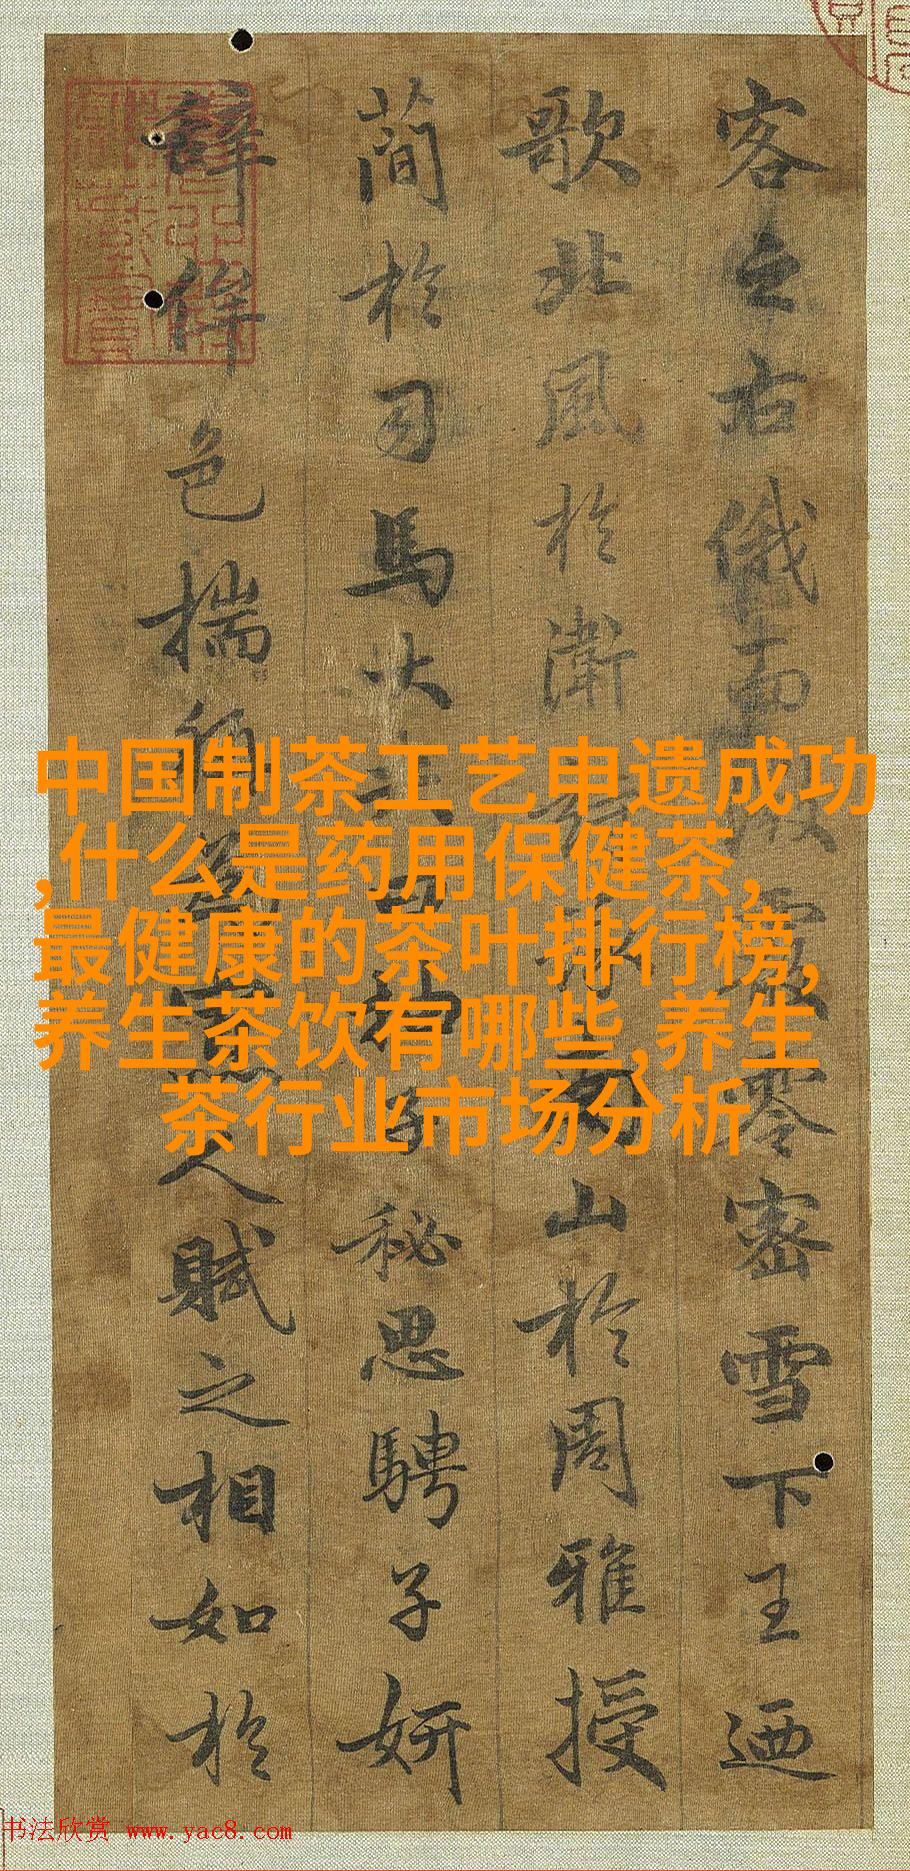 客之右俄而微霰零密雪下王迺
歌北風於衛山於周雅授
簡於司馬大子秘思騁子妍
辭侔色揣稱為寡人賦之相如於
中国制茶工艺申遗成功
,什么是药用保健茶,
最健康的茶叶排行榜,
养生茶饮有哪些,养生
茶行业市场分析
书法欣赏 www.yac8.com